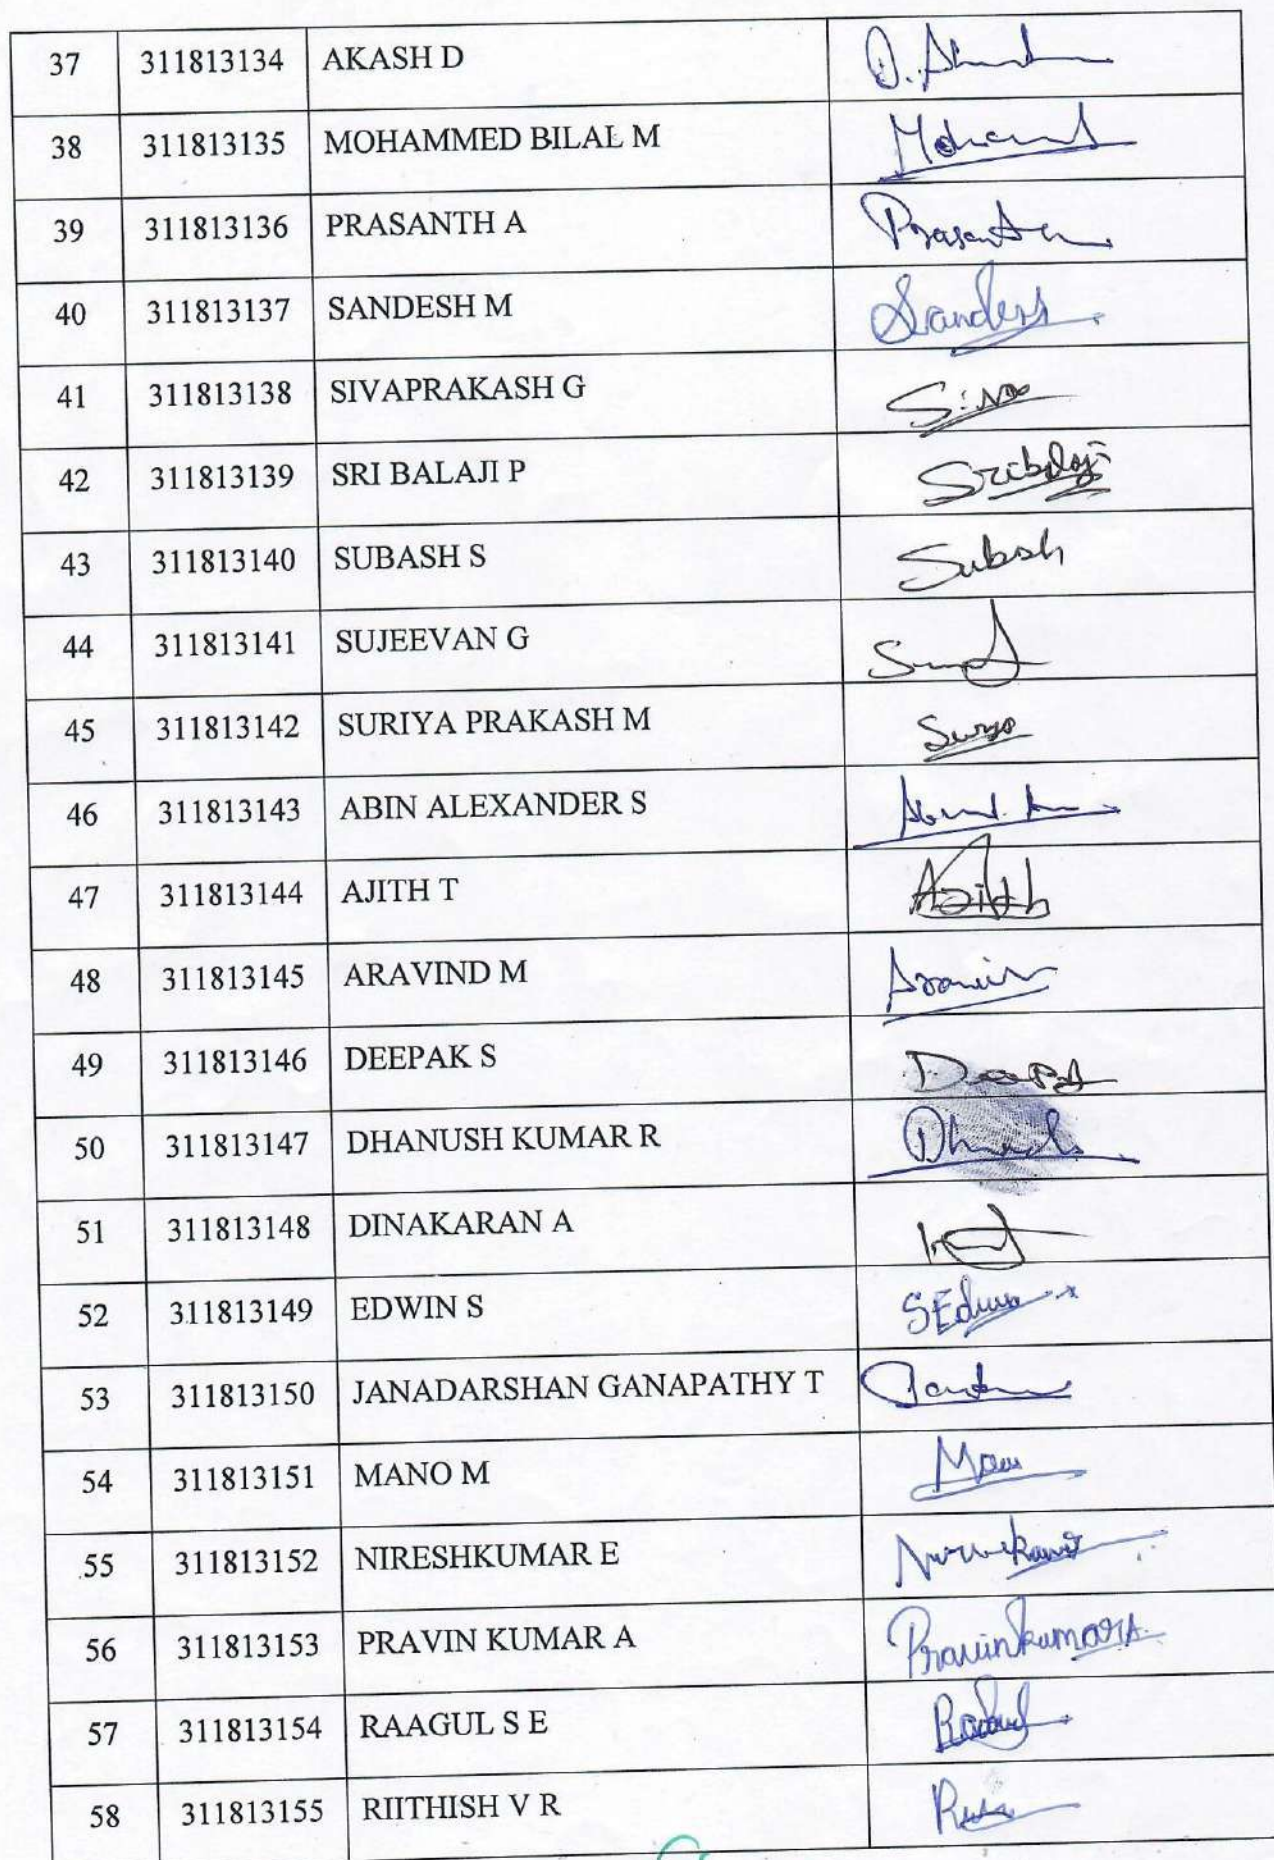 37 311813134 AKASH D D. Akash
38 311813135 MOHAMMED BILAL M Mohamed
39 311813136 PRASANTH A Prasanth
40 311813137 SANDESH M Sandesh
41 311813138 SIVAPRAKASH G Siva
42 311813139 SRI BALAJI P Sribalaji
43 311813140 SUBASH S Subash
44 311813141 SUJEEVAN G
45 311813142 SURIYA PRAKASH M Surya
46 311813143 ABIN ALEXANDER S
47 311813144 AJITH T Ajith
48 311813145 ARAVIND M
49 311813146 DEEPAK S
50 311813147 DHANUSH KUMAR R
51 311813148 DINAKARAN A
52 311813149 EDWIN S SEdwin
53 311813150 JANADARSHAN GANAPATHY T
54 311813151 MANO M
55 311813152 NIRESHKUMAR E
56 311813153 PRAVIN KUMAR A Pravinkumar A
57 311813154 RAAGUL S E
58 311813155 RIITHISH V R